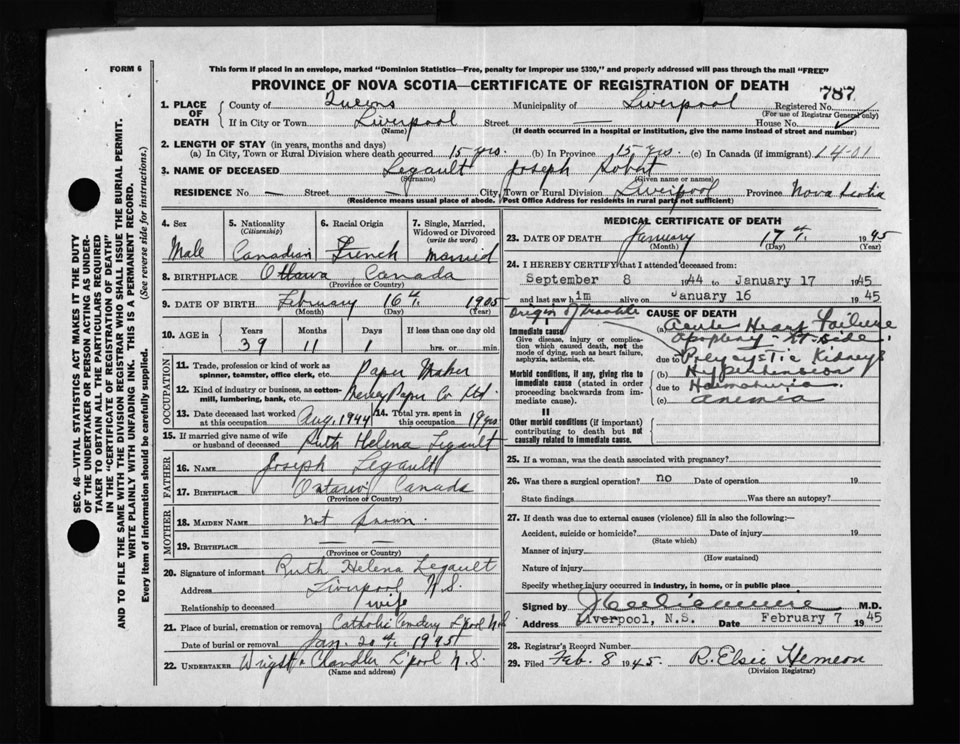 FORM 6
This form if placed in an envelope, marked "Dominion Statistics—Free, penalty for improper use $300," and properly addressed will pass through the mail "FREE"
PROVINCE OF NOVA SCOTIA—CERTIFICATE OF REGISTRATION OF DEATH
787
1. PLACE OF DEATH County of Queens Municipality of Liverpool Registered No.
(For use of Registrar General only)
If in City or Town Liverpool Street — House No. ✓
(Name) (If death occurred in a hospital or institution, give the name instead of street and number)
2. LENGTH OF STAY (in years, months and days)
(a) In City, Town or Rural Division where death occurred 15 yrs. (b) In Province 15 yrs. (c) In Canada (if immigrant) 14-01
3. NAME OF DECEASED Legault Joseph
(Surname) (Given name or names)
RESIDENCE No. — Street — City, Town or Rural Division Liverpool Province Nova Scotia
(Residence means usual place of abode. Post Office Address for residents in rural parts not sufficient)
4. Sex 5. Nationality 6. Racial Origin 7. Single, Married, Widowed or Divorced
(Citizenship) (write the word)
Male Canadian French Married
8. BIRTHPLACE Ottawa, Canada
(Province or Country)
9. DATE OF BIRTH February 16th, 1905
(Month) (Day) (Year)
10. AGE in Years Months Days If less than one day old
39 11 1 hrs. or min.
OCCUPATION
11. Trade, profession or kind of work as spinner, teamster, office clerk, etc. Paper Maker
12. Kind of industry or business, as cotton-mill, lumbering, bank, etc. Mersey Paper Co Ltd
13. Date deceased last worked at this occupation Aug. 1944 14. Total yrs. spent in this occupation 19 yrs
15. If married give name of wife or husband of deceased Ruth Helena Legault
FATHER
16. NAME Joseph Legault
17. BIRTHPLACE Ontario Canada
(Province or Country)
MOTHER
18. MAIDEN NAME not known.
19. BIRTHPLACE — —
(Province or Country)
20. Signature of informant Ruth Helena Legault
Address Liverpool N.S.
Relationship to deceased wife
21. Place of burial, cremation or removal Catholic Cemetery L'pool N.S.
Date of burial or removal Jan. 20th, 1945
22. UNDERTAKER Wright & Chandler L'pool N.S.
(Name and address)
MEDICAL CERTIFICATE OF DEATH
23. DATE OF DEATH January 17th, 1945
(Month) (Day) (Year)
24. I HEREBY CERTIFY that I attended deceased from:
September 8 1944 to January 17 1945
and last saw him alive on January 16 1945
Origin of Trouble
CAUSE OF DEATH
I
Immediate cause
Give disease, injury or complication which caused death, not the mode of dying, such as heart failure, asphyxia, asthenia, etc.
(a) Acute Heart Failure
Apoplexy - rt side.
due to Polycystic Kidneys
Morbid conditions, if any, giving rise to immediate cause (stated in order proceeding backwards from immediate cause).
(b) Hypertension
due to Hematuria.
(c) Anemia
II
Other morbid conditions (if important) contributing to death but not causally related to immediate cause.
25. If a woman, was the death associated with pregnancy?
26. Was there a surgical operation? no Date of operation 19
State findings Was there an autopsy?
27. If death was due to external causes (violence) fill in also the following:—
Accident, suicide or homicide? Date of injury 19
(State which)
Manner of injury
(How sustained)
Nature of injury
Specify whether injury occurred in industry, in home, or in public place
Signed by M.D.
Address Liverpool, N.S. Date February 7 1945
28. Registrar's Record Number
29. Filed Feb. 8 1945. R. Elsie Hemeon
(Division Registrar)
SEC. 46—VITAL STATISTICS ACT MAKES IT THE DUTY
OF THE UNDERTAKER OR PERSON ACTING AS UNDER-
TAKER TO OBTAIN ALL THE PARTICULARS REQUIRED
IN THE "CERTIFICATE OF REGISTRATION OF DEATH"
AND TO FILE THE SAME WITH THE DIVISION REGISTRAR WHO SHALL ISSUE THE BURIAL PERMIT.
WRITE PLAINLY WITH UNFADING INK. THIS IS A PERMANENT RECORD.
Every item of information should be carefully supplied. (See reverse side for instructions.)